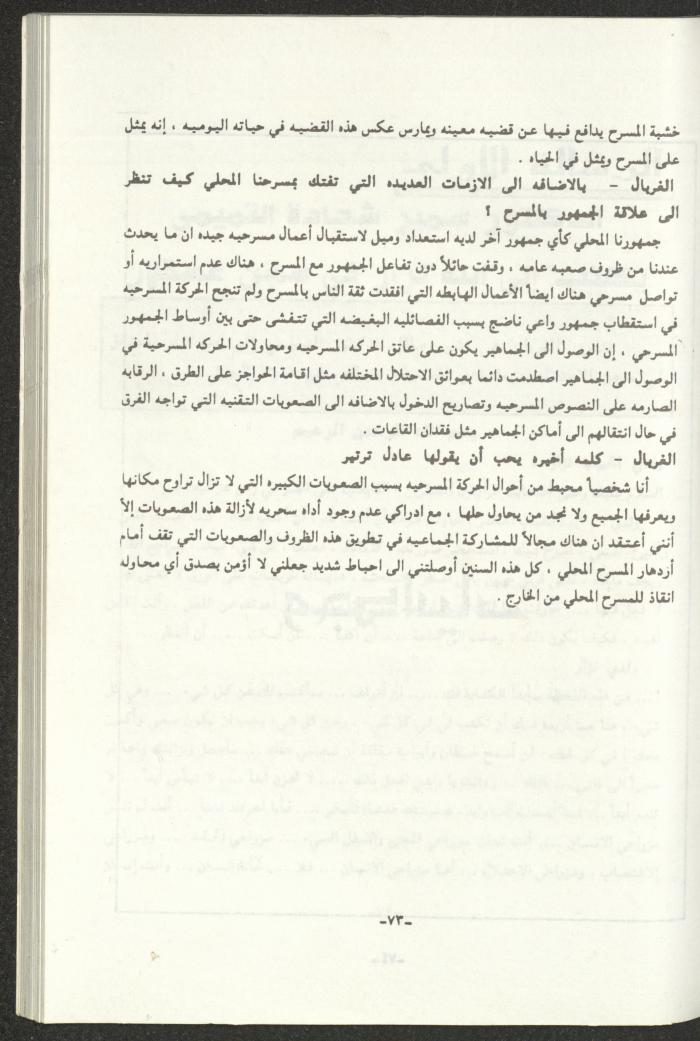 خشبة المسرح يدافع فيها عن قضيه معينه ويمارس عكس هذه القضيه في حياته اليوميه ، إنه يمثل
على المسرح ويمثل في الحياه .
الغربال – بالاضافه الى الازمات العديده التي تفتك بمسرحنا المحلي كيف تنظر
الى علاقة الجمهور بالمسرح ؟
جمهورنا المحلي كأي جمهور آخر لديه استعداد وميل لاستقبال أعمال مسرحيه جيده ان ما يحدث
عندنا من ظروف صعبه عامه ، وقفت حائلاً دون تفاعل الجمهور مع المسرح ، هناك عدم استمراريه أو
تواصل مسرحي هناك ايضاً الأعمال الهابطه التي افقدت ثقة الناس بالمسرح ولم تنجح الحركة المسرحيه
في استقطاب جمهور واعي ناضج بسبب الفصائليه البغيضه التي تتفشى حتى بين أوساط الجمهور
المسرحي ، إن الوصول الى الجماهير يكون على عاتق الحركه المسرحيه ومحاولات الحركه المسرحية في
الوصول الى الجماهير اصطدمت دائما بعوائق الاحتلال المختلفه مثل اقامة الحواجز على الطرق ، الرقابه
الصارمه على النصوص المسرحيه وتصاريح الدخول بالاضافه الى الصعوبات التقنيه التي تواجه الفرق
في حال انتقالهم الى أماكن الجماهير مثل فقدان القاعات .
الغربال – كلمه أخيره يحب أن يقولها عادل ترتير
أنا شخصياً محبط من أحوال الحركة المسرحيه بسبب الصعوبات الكبيره التي لا تزال تراوح مكانها
ويعرفها الجميع ولا نجد من يحاول حلها ، مع ادراكي عدم وجود أداه سحريه لأزالة هذه الصعوبات إلاّ
أنني أعتقد ان هناك مجالاً للمشاركة الجماعيه في تطويق هذه الظروف والصعوبات التي تقف أمام
أزدهار المسرح المحلي ، كل هذه السنين أوصلتني الى احباط شديد جعلني لا أؤمن بصدق أي محاوله
انقاذ للمسرح المحلي من الخارج .
-٧٣-